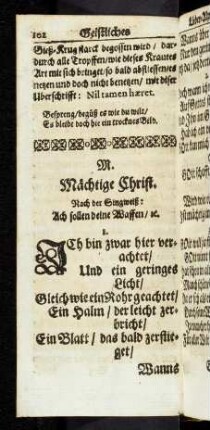 102 Geistliches
Gieß-Krug starck begossen wird / dar-
durch alle Tropffen / wie dieses Krautes
Art mit sich bringet / so bald abfliessen
netzen und doch nicht benetzen / mit dieser
Uberschrifft: Nil tamen hæret.
Bespreng / begüß es wie du wilt /
So bleibt doch hie ein trocknes Bild.
M.
Mächtige Christ.
Nach der Singweiß:
Ach sollen deine Waffen / ꝛc.
1.
ICh bin zwar hier ver-
achtet /
Und ein geringes
Licht /
Gleich wie ein Rohr geachtet /
Ein Halm / der leicht zer-
bricht /
Ein Blatt / das bald zerstie-
get /
Wanns